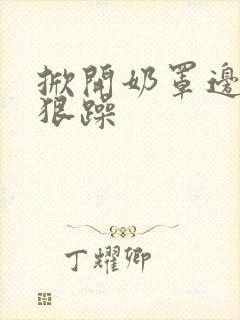 掀開奶罩邊
狠躁
丁耀卿